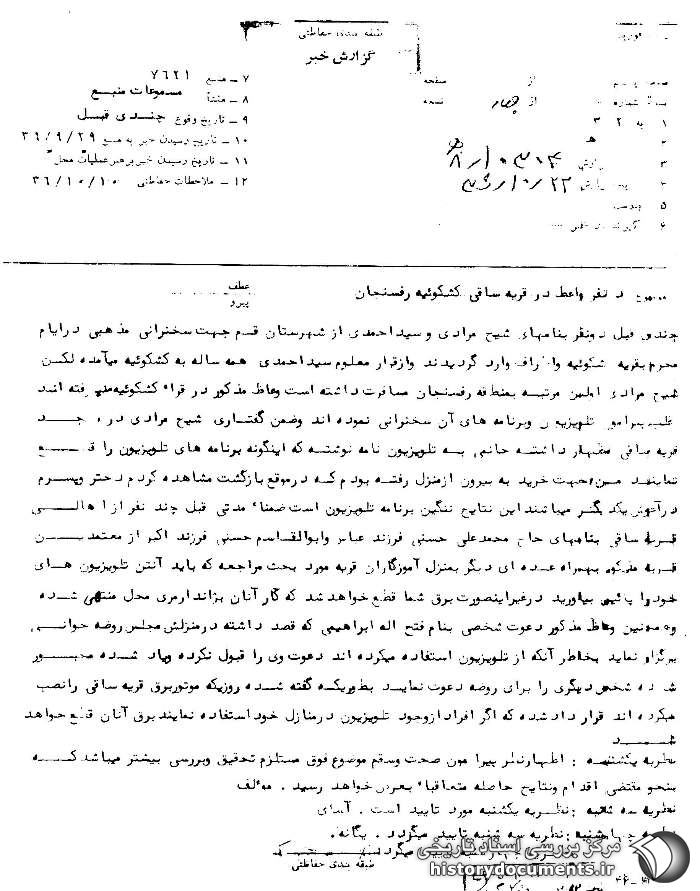 طبقه بندی حفاظتی
گزارش خبر
از صفحه
از چهار نسخه
۱ به ۳۰۲
۲ ه‍
۵
۶
۷ – منبع ۷۶۲۱
۸ – منشأ مسموعات منبع
۹ – تاریخ وقوع چندی قبل
۱۰ – تاریخ رسیدن خبر به منبع ۳۶/۹/۲۹
۱۱ – تاریخ رسیدن خبر برهبر عملیات محل
۱۲ – ملاحظات حفاظتی ۳۶/۱۰/۱۰
نفر واعظ در قریه ساقی کشکوئیه رفسنجان
عطف
پیرو
چندی قبل دونفر بنامهای شیخ مرادی و سیداحمدی از شهرستان قم جهت سخنرانی مذهبی درایام
محرم بقریه کشکوئیه واطراف وارد گردیدند وازقرار معلوم سیداحمدی همه ساله به کشکوئیه میآمده لکن
شیخ مرادی اولین مرتبه بمنطقه رفسنجان مسافرت داشته است وعاظ مذکور در قراء کشکوئیه رفته اند
تلویزیون وبرنامه های آن سخنرانی نموده اند وضمن گفتاری شیخ مرادی در جد
قریه ساقی اظهار داشته خانمی به تلویزیون نامه نوشته که اینگونه برنامه های تلویزیون را قطع
نمایند من جهت خرید به بیرون ازمنزل رفته بودم که درموقع بازگشت مشاهده کردم دختر وپسرم
درآغوش یکدیگر میباشند این نتایج ننگین برنامه تلویزیون است ضمنا مدتی قبل چند نفر از اهالی
قریه ساقی بنامهای حاج محمدعلی حسنی فرزند عباس وابوالقاسم حسنی فرزند اکبر از معتمدین
قریه مذکور بهمراه عده ای دیگر بمنزل آموزگاران قریه مورد بحث مراجعه که باید آنتن تلویزیون های
خودرا پائین بیاورید درغیراینصورت برق شما قطع خواهد شد که کار آنان بژاندارمری محل منتهی شده
وهمچنین وعاظ مذکور دعوت شخصی بنام فتح اله ابراهیمی که قصد داشته درمنزلش مجلس روضه خوانی
برگزار نماید بخاطر آنکه از تلویزیون استفاده میکرده اند دعوت وی را قبول نکرده ویاد شده مجبور
شده شخص دیگری را برای روضه دعوت نماید بطوریکه گفته شده روزیکه موتوربرق قریه ساقی رانصب
میکرده اند قرار داد شده که اگر افراد ازوجود تلویزیون درمنازل خود استفاده نمایند برق آنان قطع خواهد
شد
نظریه یکشنبه : اظهارنظر پیرامون صحت وسقم موضوع فوق مستلزم تحقیق وبررسی بیشتر میباشد که
بنحو مقتضی اقدام ونتایج حاصله متعاقبا بعرض خواهد رسید . مؤلف
نظریه سه شنبه : نظریه یکشنبه مورد تایید است . آسای
نظریه چهارشنبه : نظریه سه شنبه تایید میگردد . یگانه
میگردد
طبقه بندی حفاظتی
مرکز بررسی اسناد تاریخی
historydocuments.ir